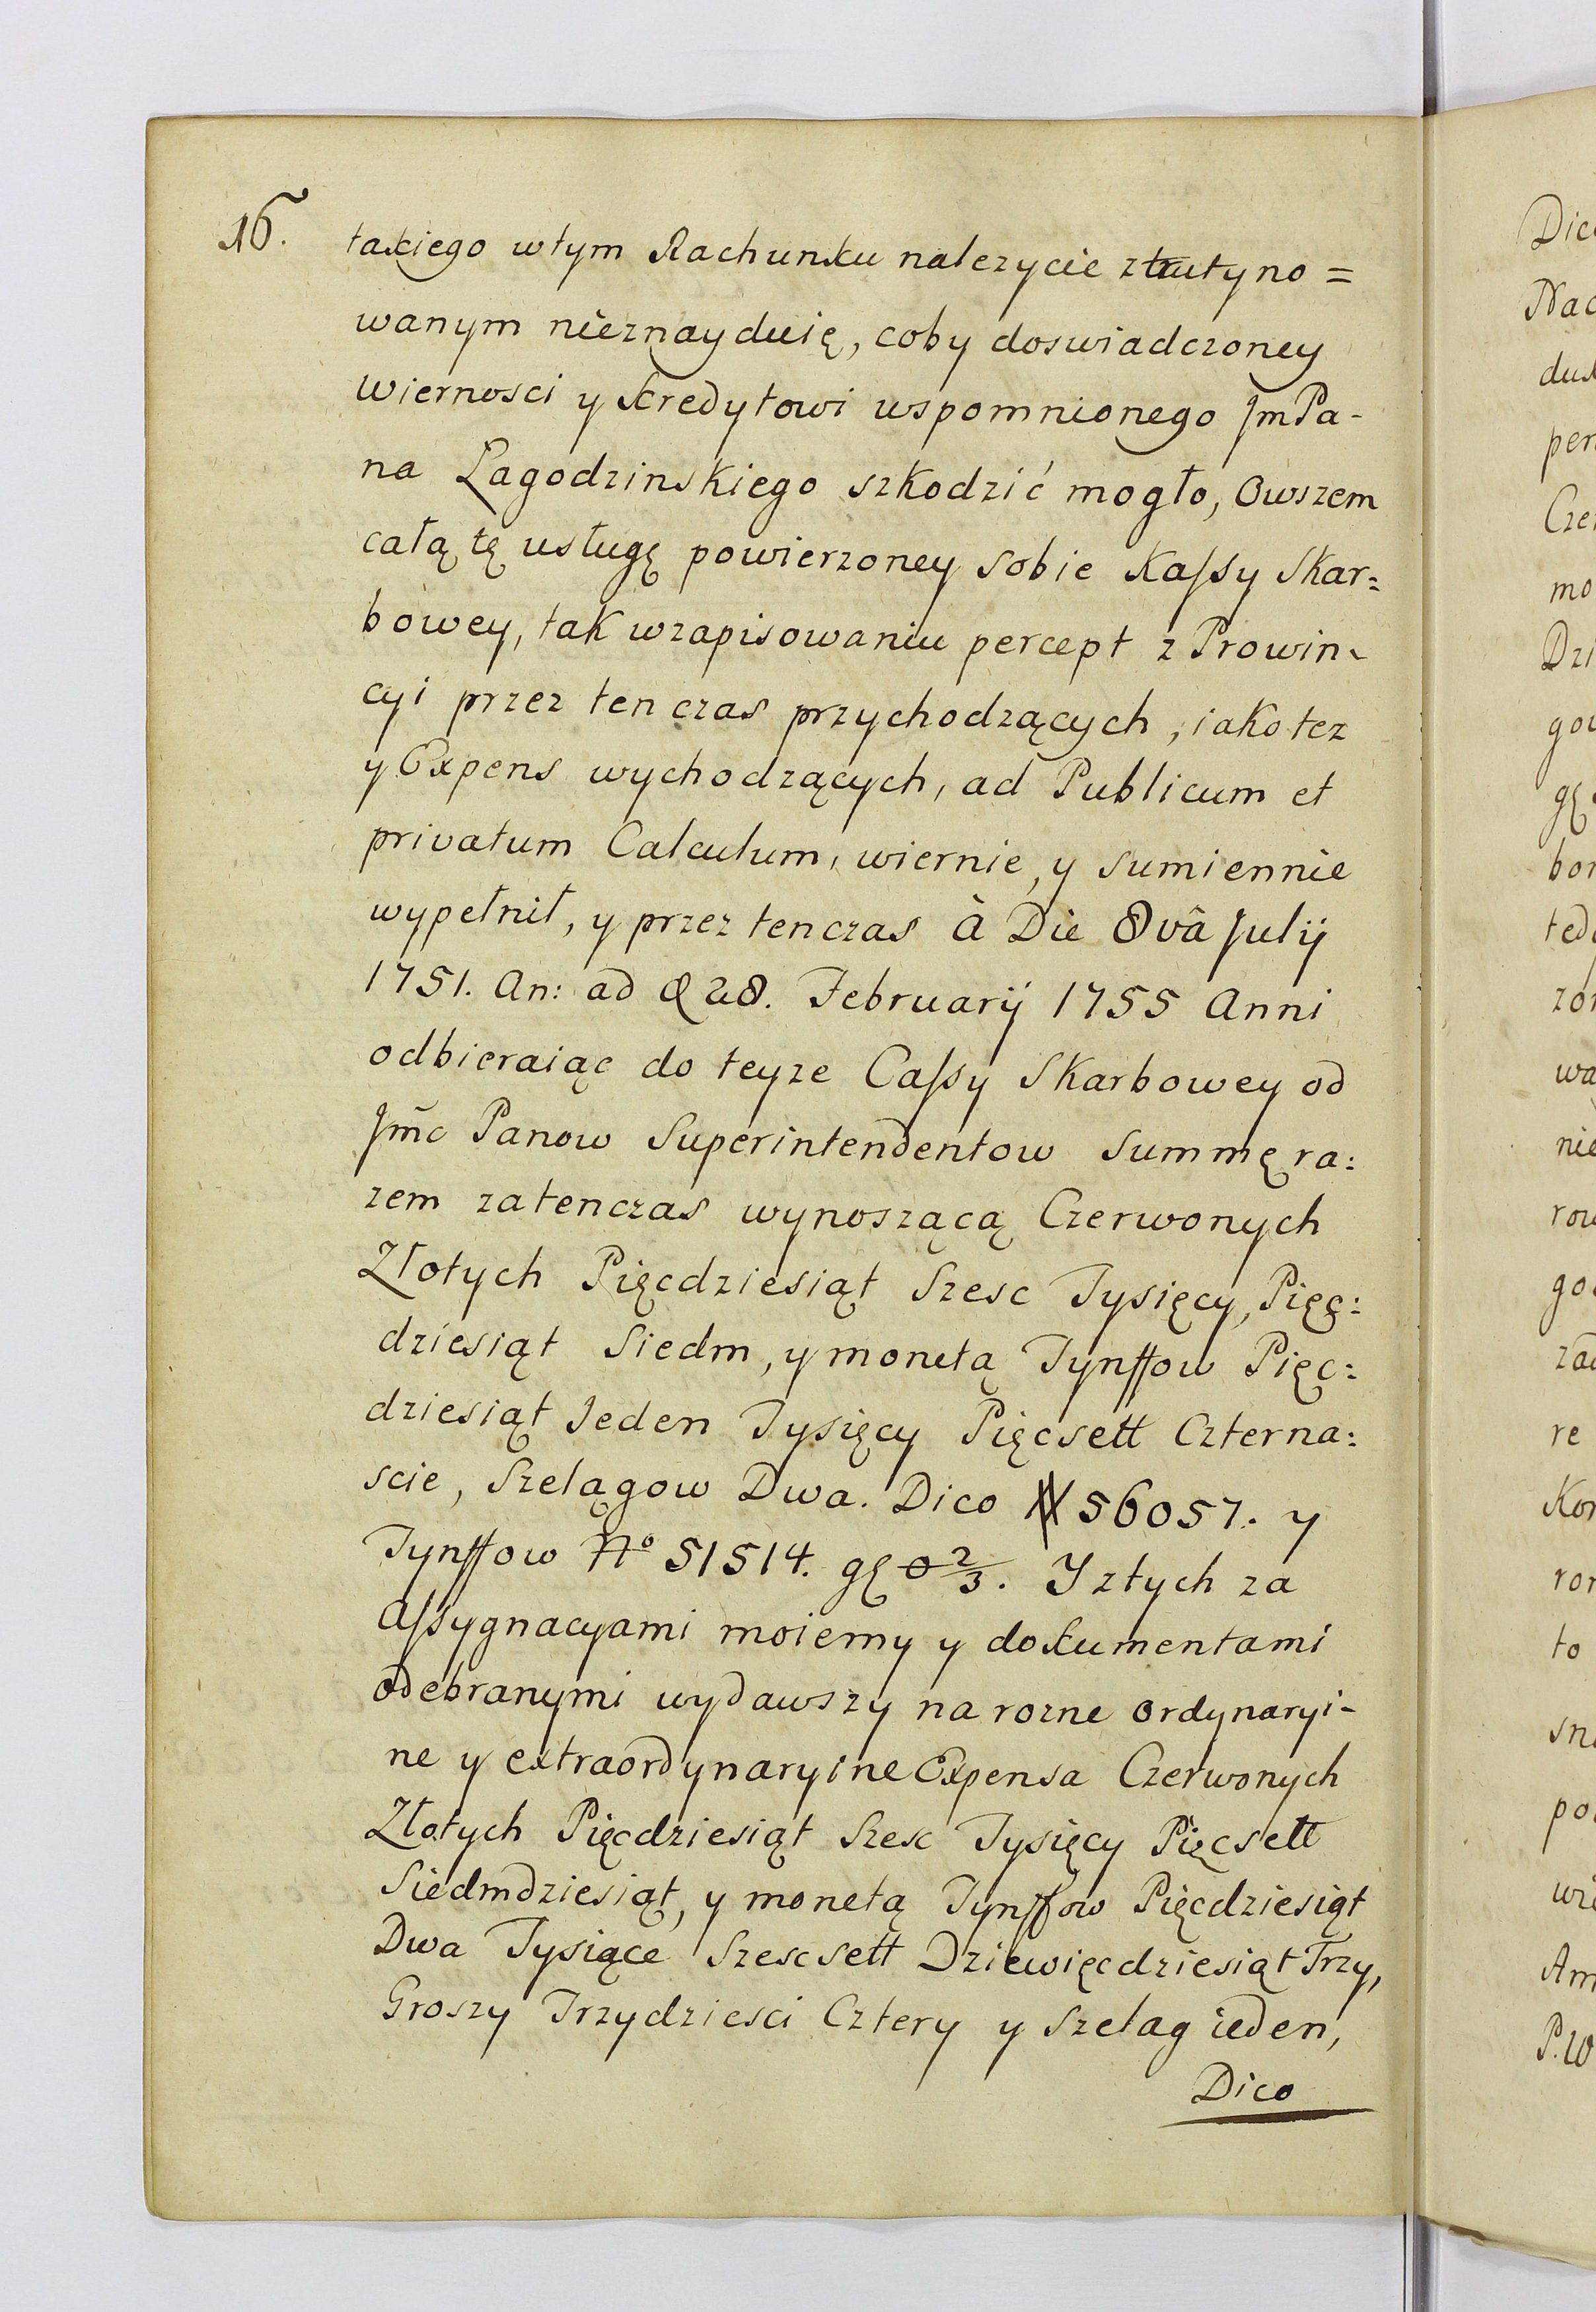 16.
takiego wtym Rachunku nalezycie ztrutyno =
wanym nieznayduię, coby doswiadczoney
wiernosci y kredytowi uspomnionego JmPa-
na Łagodzinskiego szkodzić mogło, Owszem
całą tę usługę powierzoney sobie Kassy Skar:
bowey, tak wzapisowaniu percept z Prowin-
cyi przez ten czas przychodzących, iako tez
y Expens wychodzących, ad Publicum et
privatum Calculum, wiernie, y sumiennie
wypełnił, y przez tenczas à Die 8vâ Julij
1751. An: ad d 28. Februarij 1755 Anni
odbieraiąc do teyze Cassy Skarbowey od
Jm̃c Panow Superintendentow Summę ra:
zem zatenczas wynoszącą Czerwonych
Złotych Pięcdziesiąt Szesc Tysięcy, Pięc:
dziesiąt Siedm, y monetą Tynffow Pięc:
dziesiąt Jeden Tysięcy Pięcsett Czterna:
scie, Szelągow Dwa. Dico # 56057. y
Tynffow No 51514. gę 0 2/3. Y ztych za
assygnacyami moiemy y dokumentami
odebranymi wydawszy na rozne ordynaryi-
ne y extraordynaryine Expensa Czerwonych
Złotych Pięcdziesiąt Szesc Tysięcy Pięcsett
Siedmdziesiąt, y monetą Tynffow Pięcdziesiąt
Dwa Tysiące Szescsett Dziewięcdziesiąt Trzy,
Groszy Trzydziesci Cztery y Szelag ieden,
Dico
Dic
Nac
dus
per
Cze
mo
Dzi
gou
gę
bor
ted
zor
wa
nie
row
go
zad
re
Kor
ror
to
sn
po
wie
Am
P. W